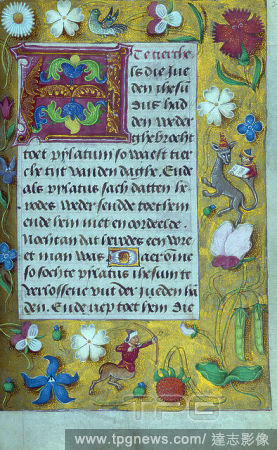 Te tierche
is die jue
den ihesu
dus had
den weder
ghebrocht
toet pylatum so waest tier
ste tijt van den daghe. Ende
als pylatus sach dat ten he
rodes weder sende toet hem
ende hem niet en oordeele
Nochtan dat herodes een wre
et man was Daer ome
so sochte pylatus ihesum te
verlossene vut der jueden ha
den. Ende riep toet hem die
TPG
www.tpgnews.com/達志影像